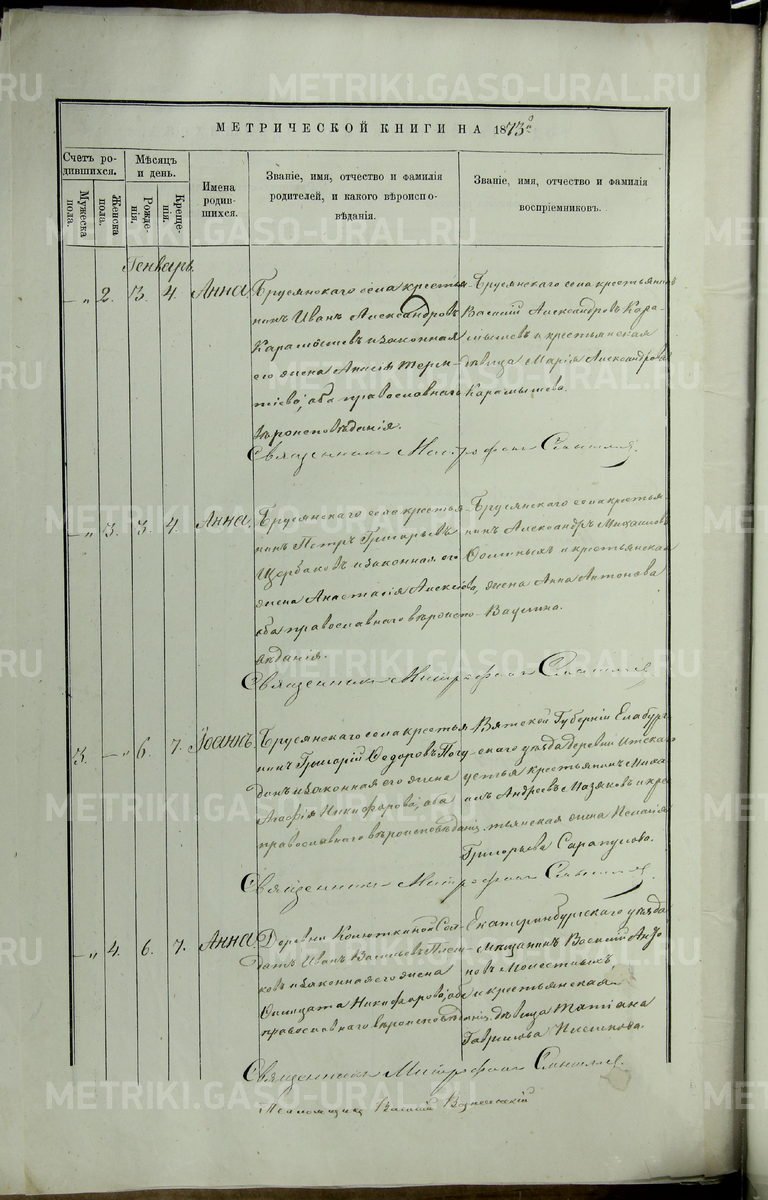 МЕТРИЧЕСКОЙ КНИГИ НА 1873 о
Счетъ родившихся.
Мѣсяцъ и день.
Имена родившихся.
Званіе, имя, отчество и фамилія родителей, и какого вѣроисповѣданія.
Званіе, имя, отчество и фамилія воспріемниковъ.
Мужеска пола.
Женска пола.
Рожденія.
Крещенія.
Генварь.
— „ 2. 3. 4. Анна
Брусянскаго села крестья-
нинъ Иванъ Александровъ
Карамышевъ и законная
его жена Анисія Терен-
тіева, оба православнаго
вѣроисповѣданія.
Брусянскаго села крестьянинъ
Василій Александровъ Кара-
мышевъ и крестьянская
дѣвица Марія Александрова
Карамышева.
Священникъ Митрофанъ
— „ 3. 3. 4. Анна.
Брусянскаго села крестья-
нинъ Петръ Григорьевъ
Щербаковъ и законная его
жена Анастасія Алексіева,
оба православнаго вѣроиспо-
вѣданія.
Брусянскаго села крестья-
нинъ Александръ Михаиловъ
и крестьянская
жена Анна Антонова
Ваулина.
Священникъ Митрофанъ
3. — „ 6. 7. Іоаннъ.
Брусянскаго села крестья-
нинъ Григорій Федоровъ Погу-
данъ и законная его жена
Агафія Никифорова, оба
православнаго вѣроисповѣданія.
Вятской Губерніи Елабуж-
скаго уѣзда деревни
устья крестьянинъ Миха-
илъ Андреевъ Мазяковъ и кре-
стьянская жена Пелагія
Григорьева Сарапулова.
Священникъ Митрофанъ
— „ 4. 6. 7. Анна.
Деревни Колюткиной Сол-
датъ Иванъ Васильевъ
и законная его жена
Никифорова, оба
православнаго вѣроисповѣданія.
Екатеринбургскаго уѣзда
Мѣщанинъ Василій
и крестьянская
дѣвица Татіана
Гаврилова
Священникъ Митрофанъ
Псаломщикъ Василій Вознесенскій
METRIKI.GASO-URAL.RU